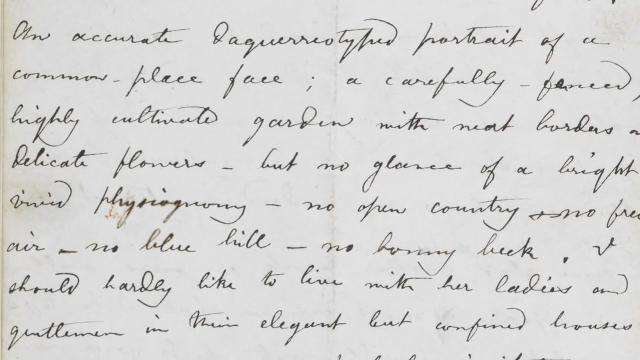 An accurate Daguerreotyped portrait of a
common-place face; a carefully-fenced,
highly cultivated garden with neat borders
delicate flowers - but no glance of a bright
vivid physiognomy - no open country - no
air - no blue hill - no bonny beck. I
should hardly like to live with her ladies and
gentlemen in their elegant but confined houses